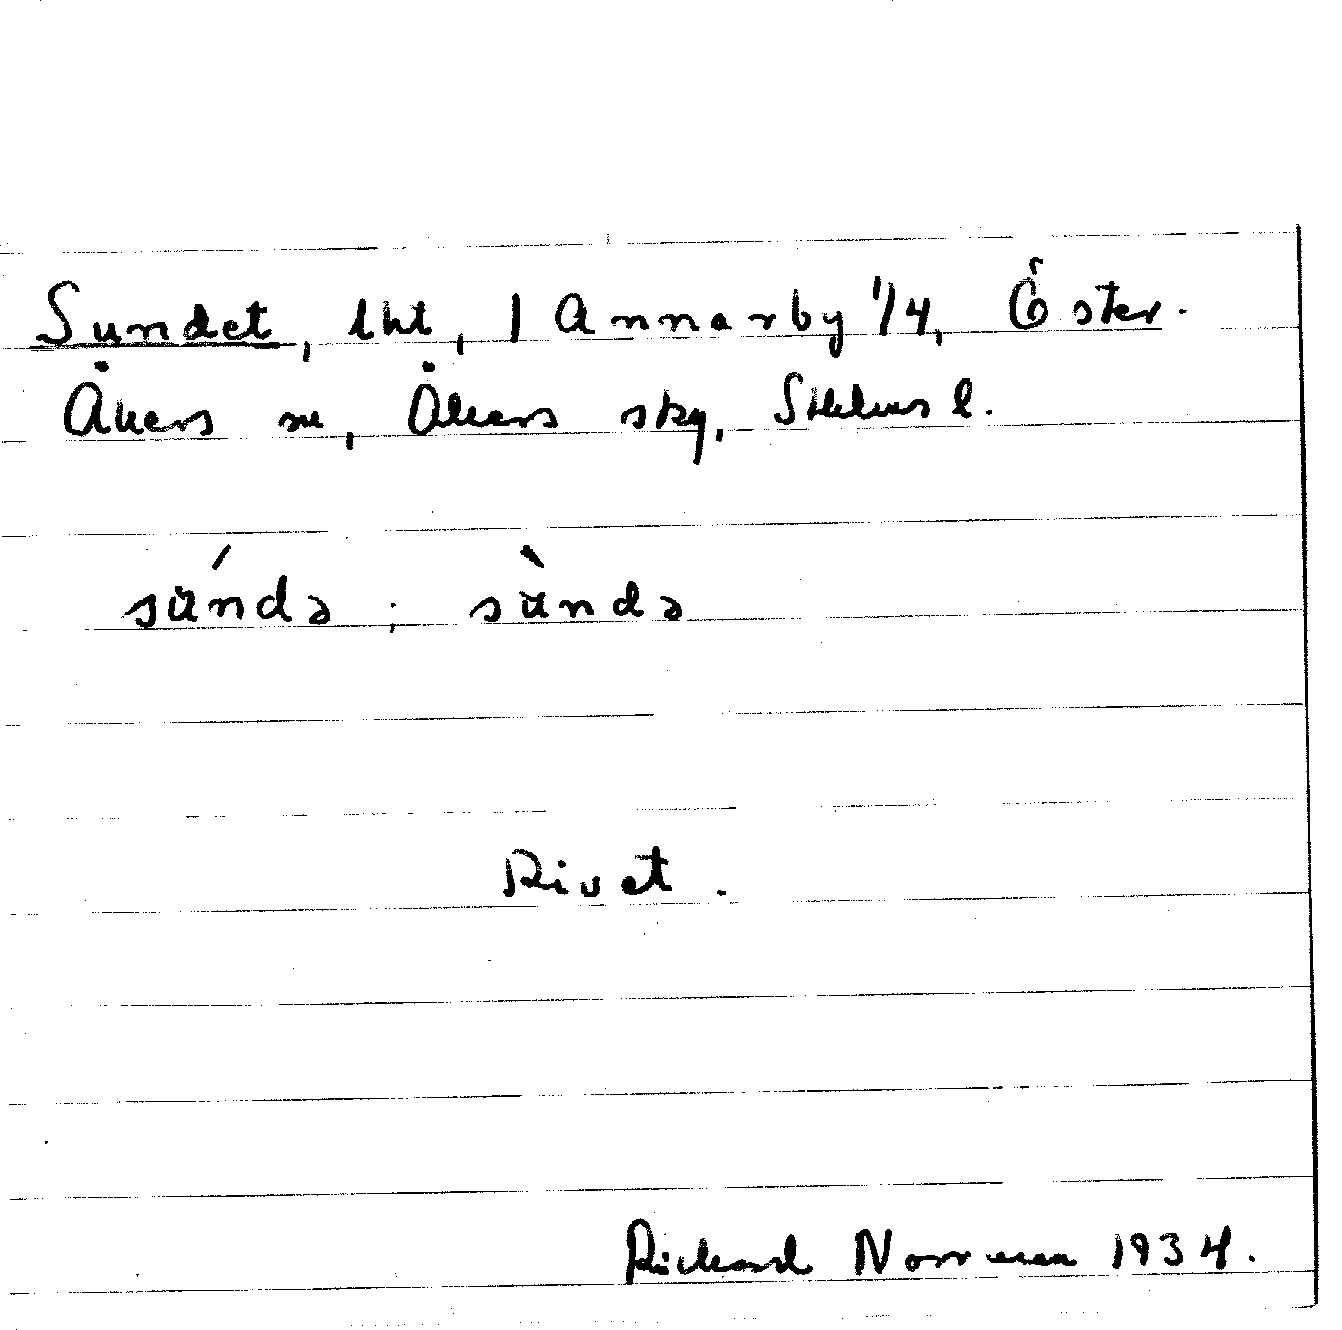 Sundet, lht, 1 Annarby 1/4, Öster-
Åkers sn, Åkers sky, Sthlms l.
súndə ; sùndə
Rivet.
Rickard Norrman 1934.